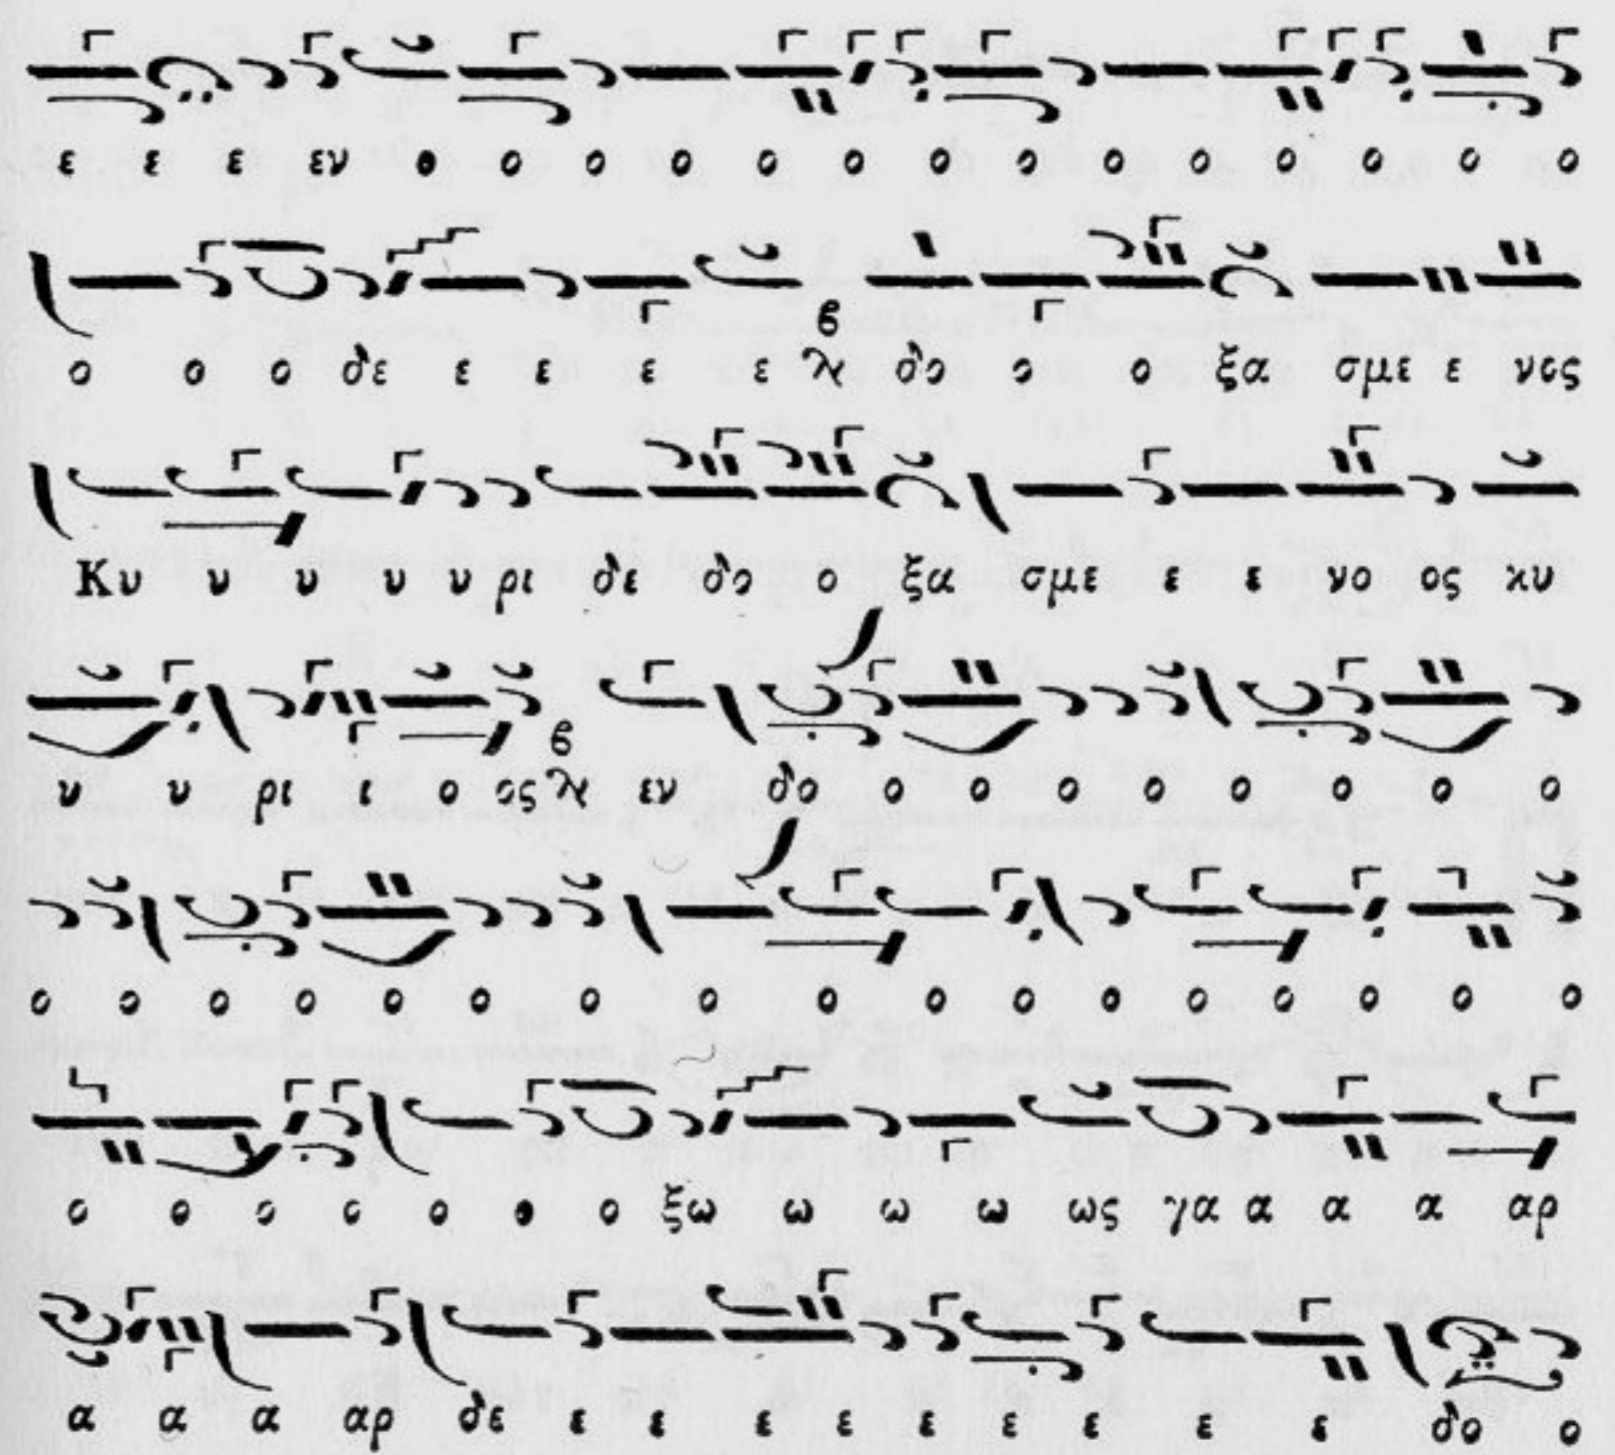 ε ε ε εν ο ο ο ο ο ο ο ο ο ο ο ο ο ο
ο ο ο δε ε ε ε ε ϗ δο ο ο ξα σμε ε νος
Κυ υ υ υ υ ρι δε δο ο ξα σμε ε ε νο ος κυ
υ υ ρι ι ο ος ϗ εν δο ο ο ο ο ο ο ο ο
ο ο ο ο ο ο ο ο ο ο ο ο ο ο ο ο ο
ο ο ο ο ο ο ο ξω ω ω ω ως γα α α α αρ
α α α αρ δε ε ε ε ε ε ε ε ε ε δο ο